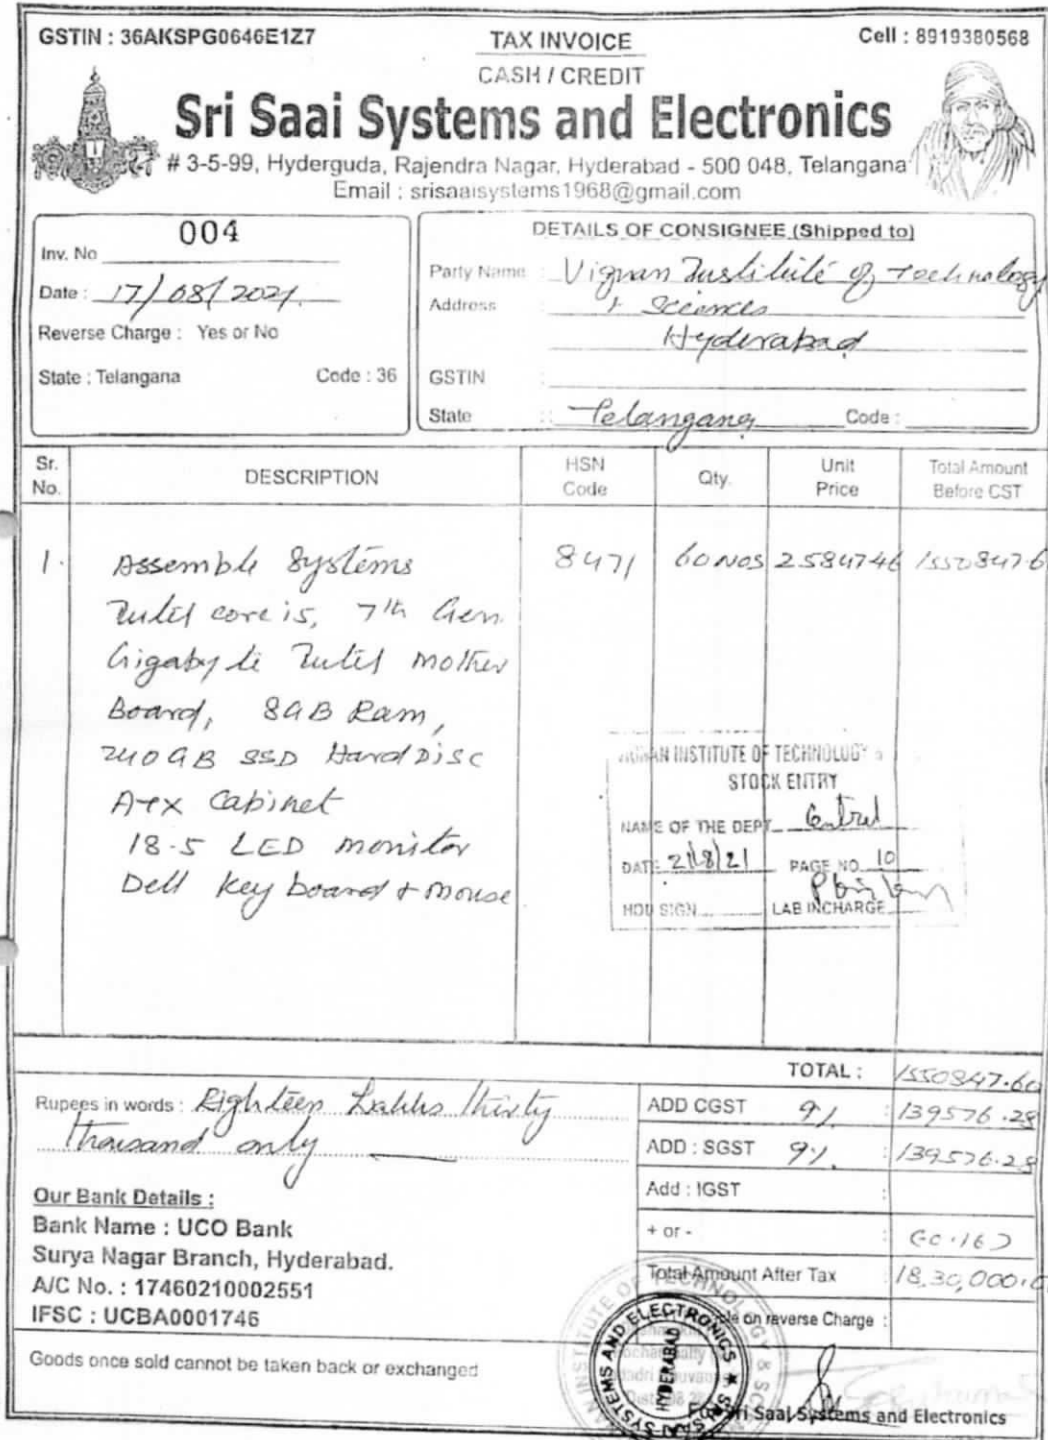 GSTIN : 36AKSPG0646E1Z7
TAX INVOICE
Cell : 8919380568
CASH / CREDIT
Sri Saai Systems and Electronics
# 3-5-99, Hyderguda, Rajendra Nagar, Hyderabad - 500 048, Telangana
Email : srisaaisystems1968@gmail.com
Inv. No 004
Date : 17/08/2021.
Reverse Charge : Yes or No
State : Telangana Code : 36
DETAILS OF CONSIGNEE (Shipped to)
Party Name : Vignan Institute of Technology
Address : & Sciences
Hyderabad
GSTIN :
State : Telangana Code :
Sr. No. DESCRIPTION HSN Code Qty. Unit Price Total Amount Before CST
1. Assemble Systems 8471 60 NOS 25847.46 1550847.6
Intel core i5, 7th Gen
Gigabyte Intel Mother
Board, 8GB Ram,
240GB SSD Hard Disc
ATX Cabinet
18.5 LED monitor
Dell Key board & mouse
INSTITUTE OF TECHNOLOGY
STOCK ENTRY
NAME OF THE DEPT Central
DATE 21/8/21 PAGE NO. 10
HOD SIGN LAB INCHARGE
TOTAL : 1550847.60
Rupees in words : Eighteen Lakhs Thirty
Thousand only
ADD CGST 9% : 139576.28
ADD : SGST 9% : 139576.28
Add : IGST :
+ or - : (-0.16)
Total Amount After Tax 18,30,000.0
on reverse Charge :
Our Bank Details :
Bank Name : UCO Bank
Surya Nagar Branch, Hyderabad.
A/C No. : 17460210002551
IFSC : UCBA0001746
Goods once sold cannot be taken back or exchanged
INSTITUTE OF TECHNOLOGY &
SYSTEMS AND ELECTRONICS ★
HYDERABAD
Sri Saai Systems and Electronics